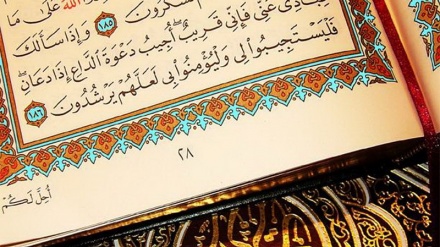 الله عَلَىٰ مَا
تَشْكُرُونَ ١٨٥ وَإِذَا سَأَلَكَ
عِبَادِي عَنِّي فَإِنِّي قَرِيبٌ أُجِيبُ دَعْوَةَ الدَّاعِ إِذَا دَعَانِ
فَلْيَسْتَجِيبُوا لِي وَلْيُؤْمِنُوا بِي لَعَلَّهُمْ يَرْشُدُونَ ١٨٦
٢٨
أُحِلَّ لَكُمْ